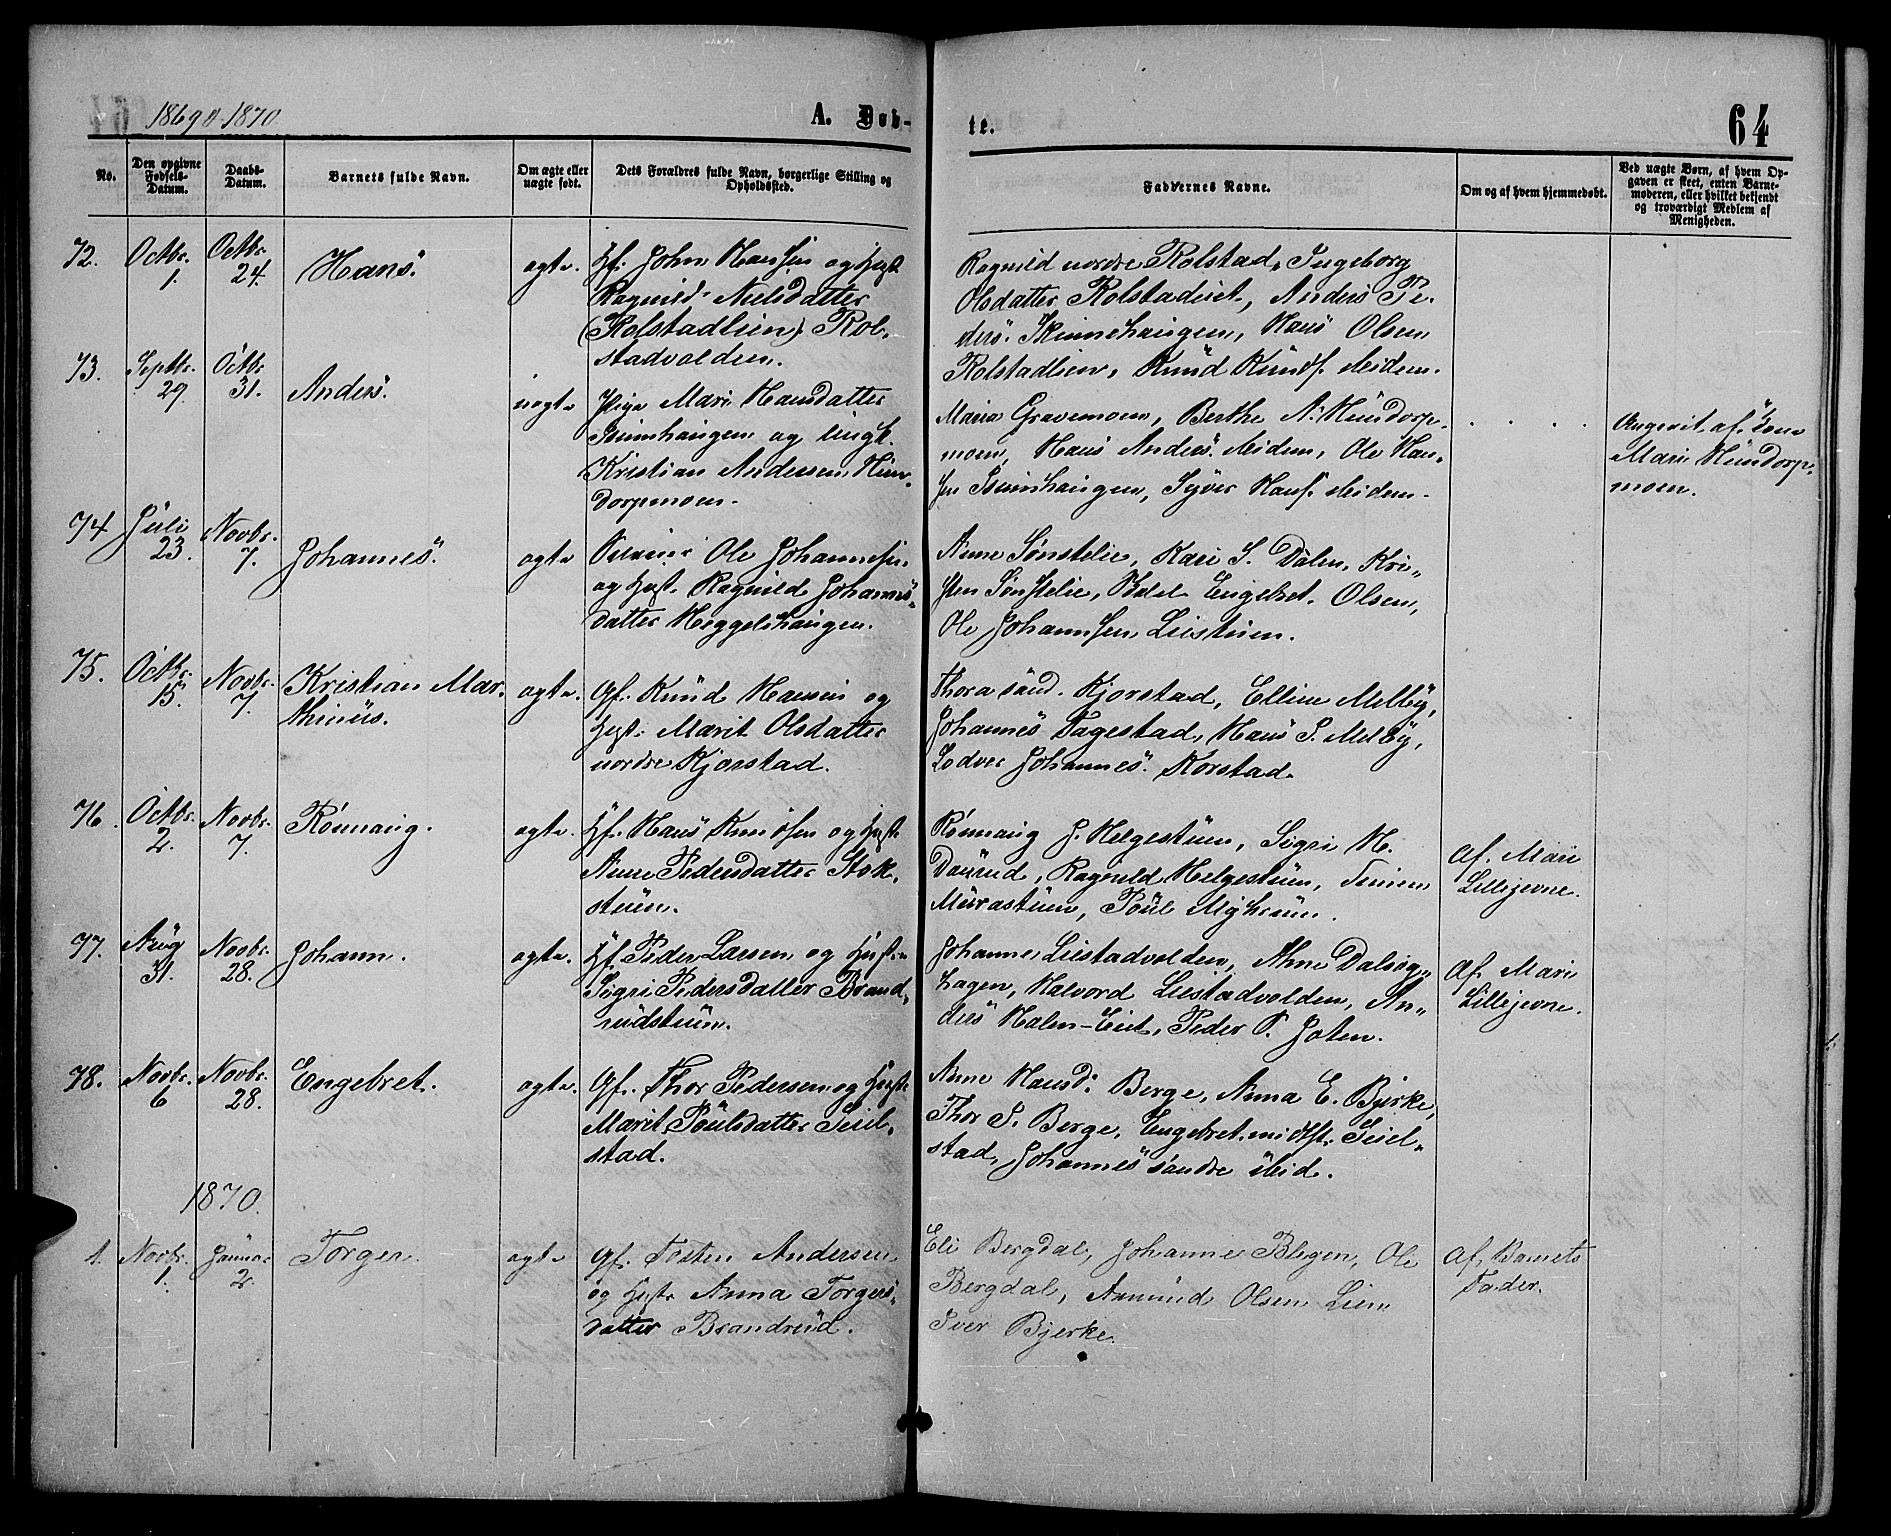 1869 o 1870
A. Døb-
te.
64
No.
Den opgivne
Fødsels-
Datum.
Daabs-
Datum.
Barnets fulde Navn.
Om ægte eller
uægte født.
Dets Forældres fulde Navn, borgerlige Stilling og
Opholdssted.
Faddernes Navne.
Om og af hvem hjemmedøbt.
Ved uægte Børn, af hvem Op-
gaven er skeet, enten Barne-
moderen, eller hvilket bekjendt
og troværdigt Medlem af
Menigheden.
72. Octbr. 1. Octbr. 24. Hans. ægte.
Hf. John Hansen og Hust.
Ragnild Nielsdatter
(Rolstadlien) Rol-
stadvolden.
Ragnild nordre Rolstad, Ingeborg
Olsdatter Rolstadeiet, Anders Pe-
ders. Skinnehaugen, Hans Olsen
Rolstadlien, Knud Knuds.
73. Septbr. 29. Octbr. 31. Anders. uægte
Pige Mari Hansdatter
og Ungk.
Kristian Andersen Hun-
dorpmoen.
Maria Gravemoen, Berthe A. Hundorp-
moen, Hans Anders. Ole Han-
sen Syver Hans.
Angivet af
Mari Hundorp-
moen.
74 Juli 23. Novbr. 7. Johannes. ægte
Ole Johannesen
og Hust. Ragnild Johannes-
datter Heggelshaugen.
Anne Sønstelie, Kari S. Dalen, Kri-
sten Sønstelie, Engebret Olsen,
Ole Johannsen Liestuen.
75. Octbr. 15. Novbr. 7. Kristian Mar-
thinius. ægte.
Gf. Knud Hansen og
Hust. Marit Olsdatter
nordre Kjorstad.
Thora sønd. Kjorstad, Elline Melby,
Johannes Fagestad, Hans S. Melby,
Lodver Johannes. Korstad.
76. Octbr. 2. Novbr. 7. Rønnaug. ægte.
Hf. Hans Knudsen og Hust.
Anne Pedersdatter Stok-
stuen.
Rønnaug J. Helgestuen, Sigri H.
Daurud, Ragnild Helgestuen,
Murastuen, Poul Myhrum.
Af. Mari
Lillejevne.
77. Aug 31. Novbr. 28. Johann. ægte.
Hf. Peder Larsen og Hust.
Sigri Pedersdatter Brand-
rudstuen.
Johanne Liestadvolden, Anne Dalsøg-
hagen, Halvord Liestadvolden, An-
ders Halm-Eiet, Peder P. Joten.
Af. Mari
Lillejevne.
78. Novbr. 6 Novbr. 28. Engebret. ægte.
Gf. Thor Pedersen og Hust.
Marit Poulsdatter Seiel-
stad.
Anne Hansd. Berge, Anna E. Bjerke,
Thor S. Berge, Engebret midtst. Seiel-
stad, Johannes søndre Eid.
1870.
1. Novbr. 1. Januar 2. Torger. ægte
Gf. Tosten Andersen
og Hust. Anna Torgers-
datter Brandrud.
Eli Bergdal, Johanne Blegen, Ole
Bergdal, Amund Olsen Lien
Iver Bjerke.
Af. Barnets
Fader.